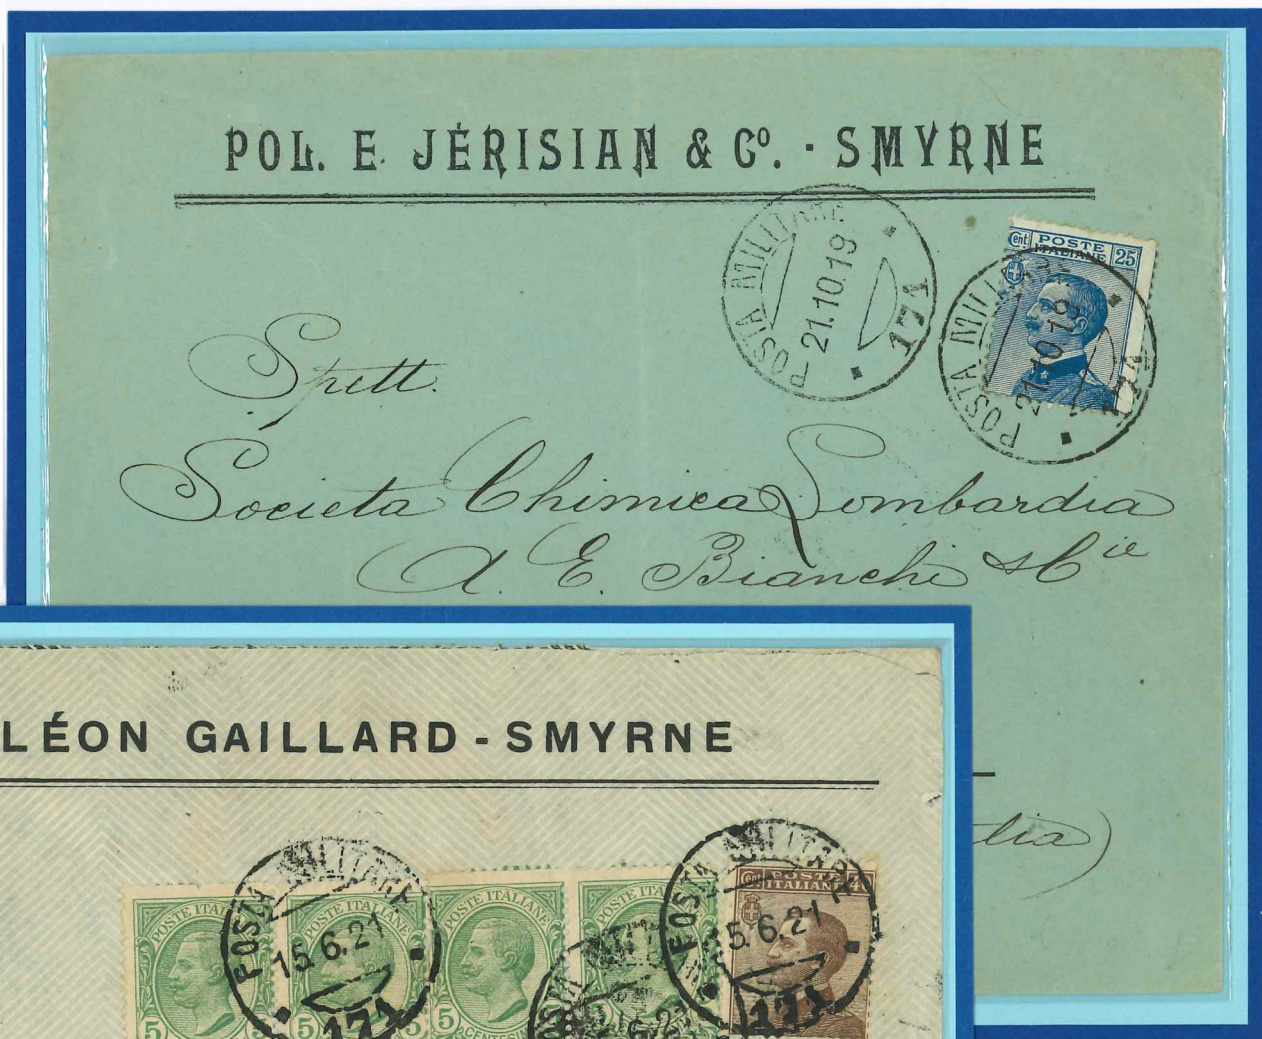 POL. E. JÉRISIAN & Cº. - SMYRNE
POSTA MILITARE
21.10.19
171
Cent POSTE 25
ITALIANE
POSTA MILITARE
21.10.19
171
Spett.
Societa Chimica Lombardia
A. E. Bianchi & Cie
lia)
LÉON GAILLARD - SMYRNE
POSTA MILITARE
15.6.21
171
POSTA MILITARE
15.6.21
171
POSTE ITALIANE
POSTE ITALIANE
POSTE ITALIANE
POSTE ITALIANE
POSTE
ITALIANE 4
5
5
5
5
CENTESIMI
POSTA